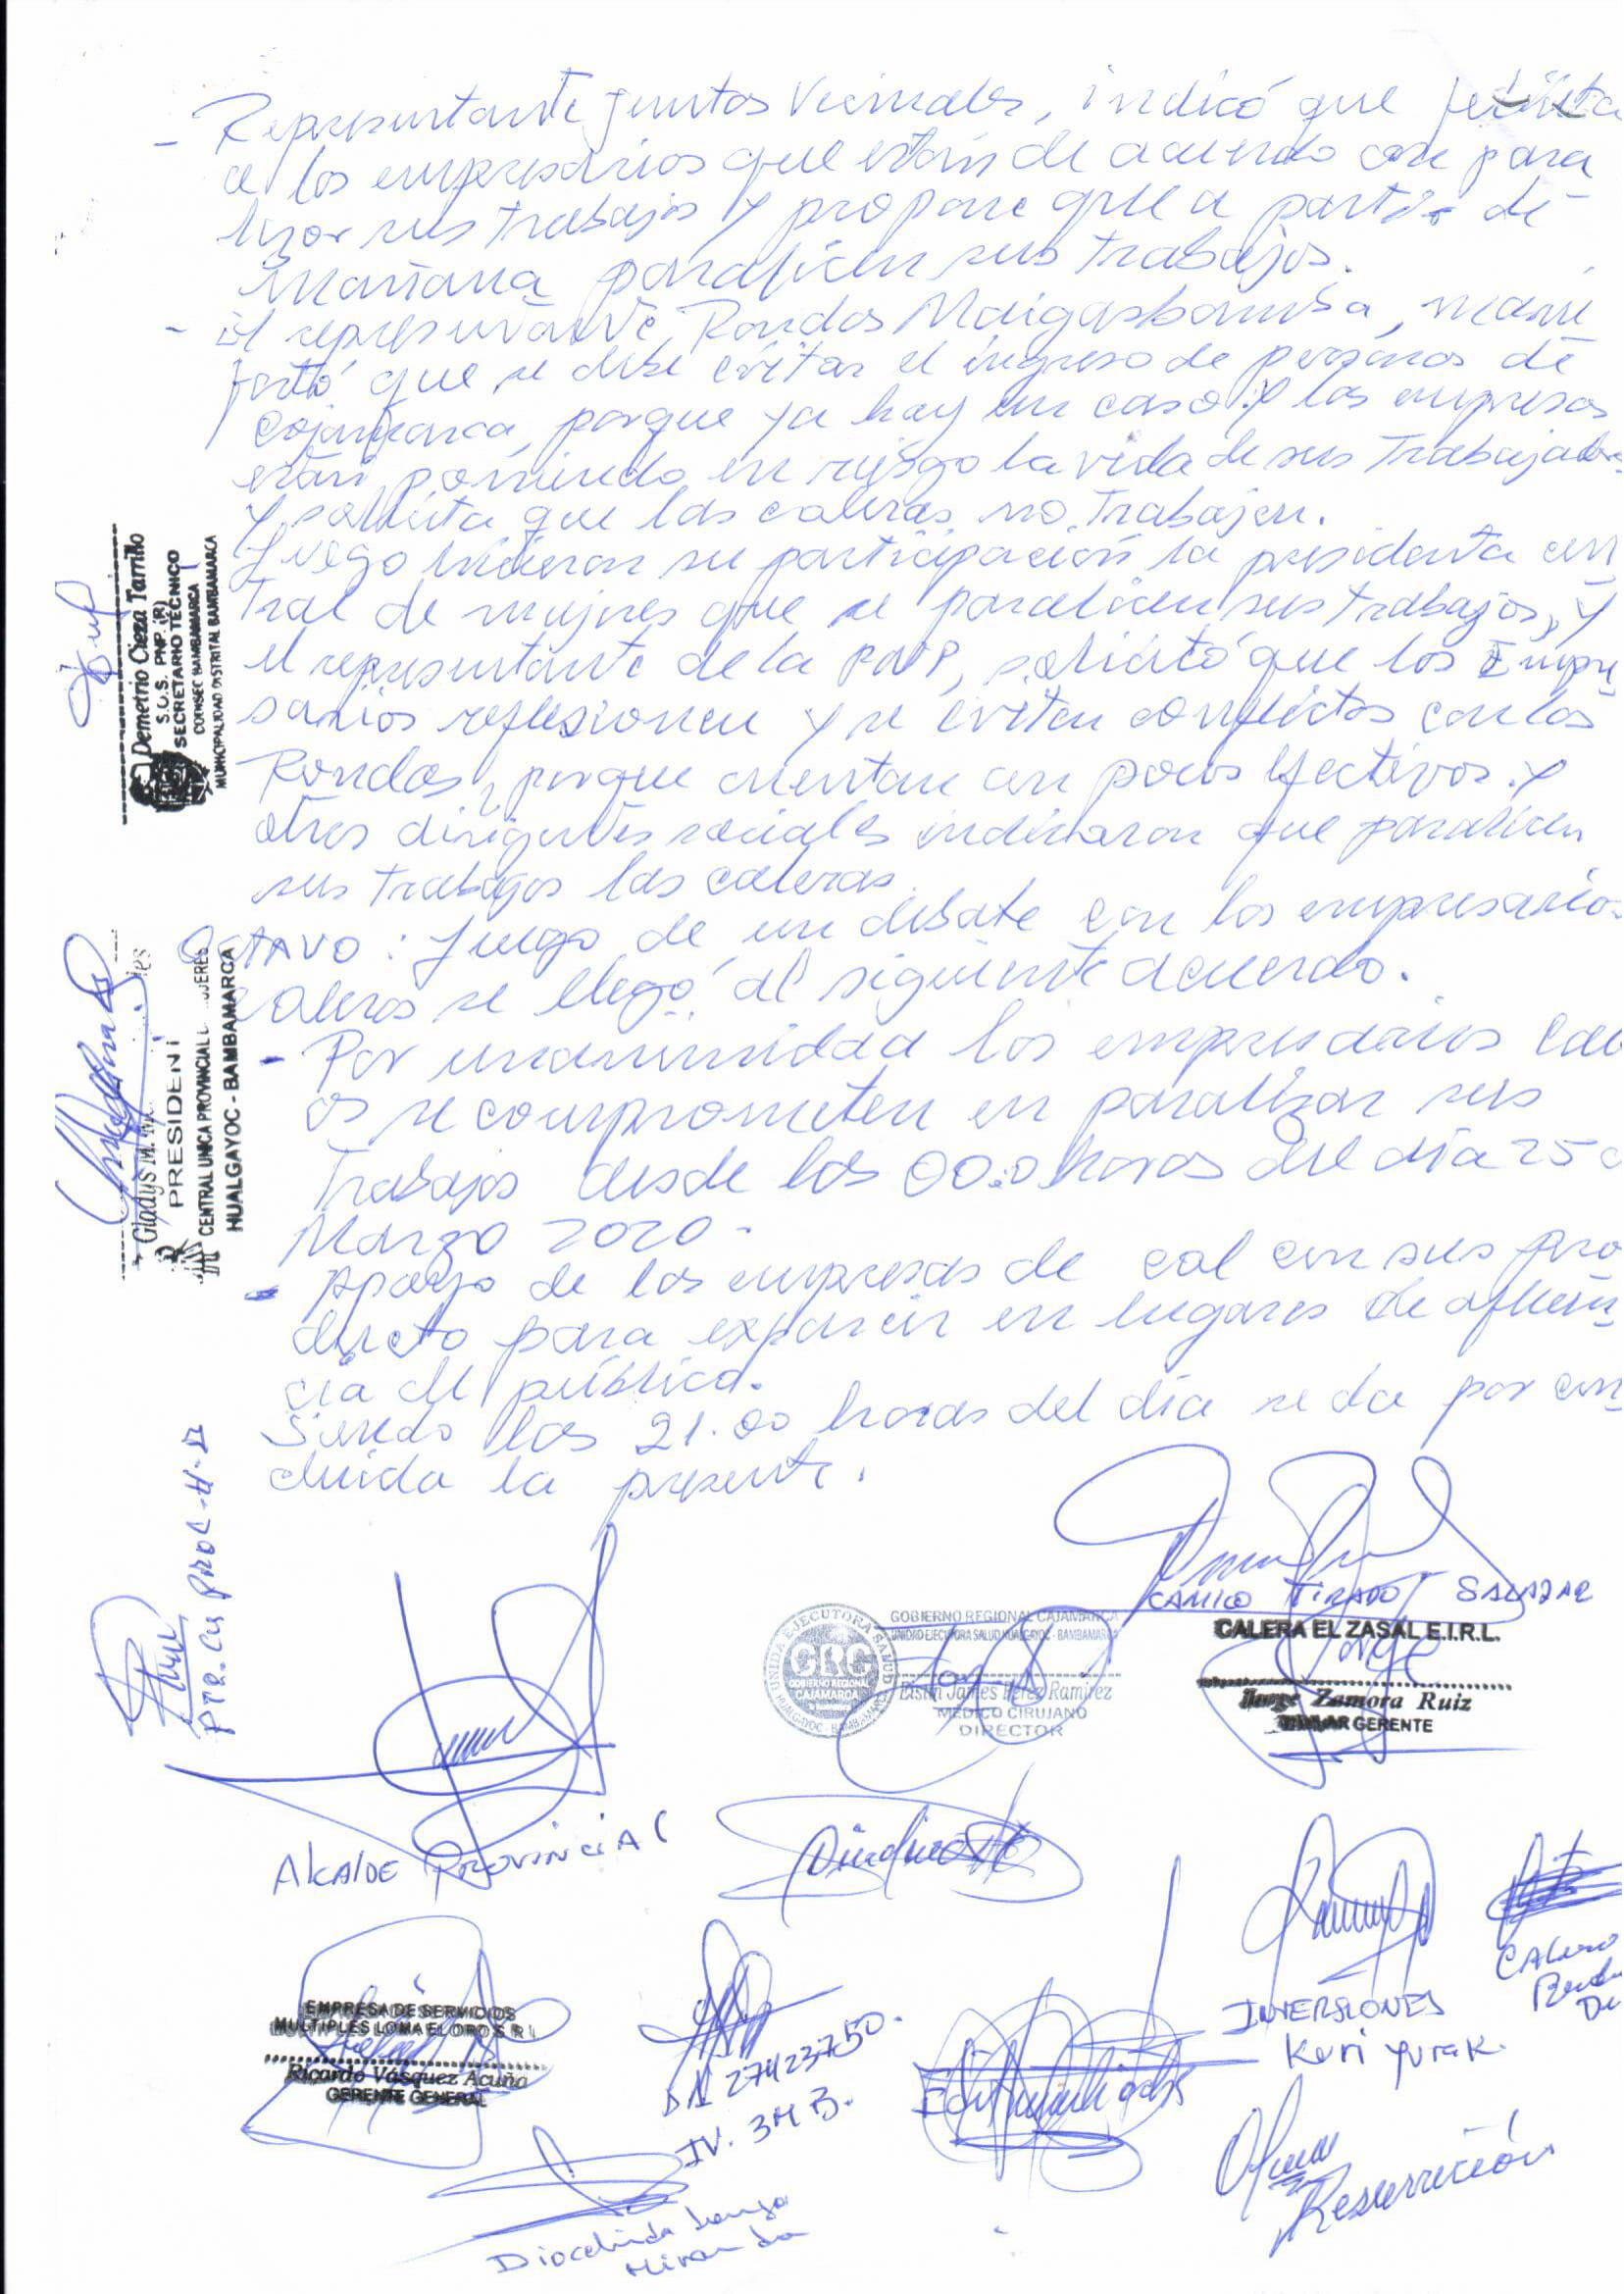 - Representante Juntas Vecinales, indicó que felicita
a los empresarios que están de acuerdo con para
lizar sus trabajos y propone que a partir de
mañana paralicen sus trabajos.
- El representante Rondas Maigasbamba, mani
festó que se debe evitar el ingreso de personas de
Cajamarca, porque ya hay un caso. Y las empresas
están poniendo en riesgo la vida de sus Trabajadores
Y solicita que las caleras no Trabajen.
Luego hicieron su participación la presidenta cen
tral de mujeres que se paralicen sus trabajos, y
el representante de la PNP, solicitó que los Empre
sarios reflexionen y se eviten conflictos con las
Rondas, porque cuentan con pocos efectivos. Y
otros dirigentes sociales indicaron que paralicen
sus trabajos las caleras.
OCTAVO: Luego de un debate con los empresarios
caleros se llegó al siguiente acuerdo.
- Por unanimidad los empresarios cale
os se comprometen en paralizar sus
Trabajos desde las 00:0 horas del día 25 d
Marzo 2020.
- Apoyo de las empresas de cal con sus pro
ducto para esparcir en lugares de afluen
cia del público.
Siendo las 21.00 horas del día se da por con
cluida la presente.
Demetrio Cieza Tarrillo
S.O.S. PNP. (R)
SECRETARIO TÉCNICO
COPROSEC BAMBAMARCA
MUNICIPALIDAD DISTRITAL BAMBAMARCA
Gladys M.
PRESIDENT
CENTRAL UNICA PROVINCIAL
HUALGAYOC - BAMBAMARCA
CAMILO TIRADO SALAZAR
CALERA EL ZASAL E.I.R.L.
Jorge Zamora Ruiz
TITULAR GERENTE
UNIDAD EJECUTORA SALUD
GRC
GOBIERNO REGIONAL
CAJAMARCA
HUALGAYOC - BAMBAMARCA
GOBIERNO REGIONAL CAJAMARCA
UNIDAD EJECUTORA SALUD HUALGAYOC - BAMBAMARCA
Elstin James Pérez Ramírez
MEDICO CIRUJANO
DIRECTOR
ALCALDE PROVINCIAL
EMPRESA DE SERVICIOS
MULTIPLES LOMA EL ORO S.R.L
Ricardo Vásquez Acuña
GERENTE GENERAL
27423750.
INVERSIONES
Keri Yurak.
Resurrección
Miranda